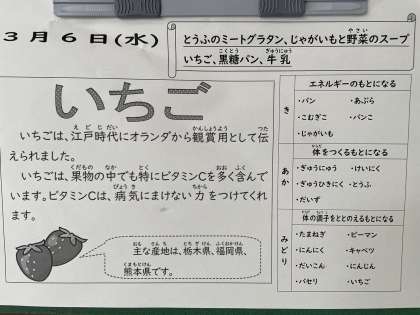 3月6日(水)
とうふのミートグラタン、じゃがいもと野菜のスープ
いちご、黒糖パン、牛乳
いちご
いちごは、江戸時代にオランダから観賞用として伝
えられました。
いちごは、果物の中でも特にビタミンCを多く含んで
います。ビタミンCは、病気にまけない力をつけてくれ
ます。
主な産地は、栃木県、福岡県、
熊本県です。
き
エネルギーのもとになる
・パン ・あぶら
・こむぎこ ・パンこ
・じゃがいも
あか
体をつくるもとになる
・ぎゅうにゅう ・けいにく
・ぎゅうひきにく ・とうふ
・だいず
みどり
体の調子をととのえるもとになる
・たまねぎ ・ピーマン
・にんにく ・キャベツ
・だいこん ・にんじん
・パセリ ・いちご